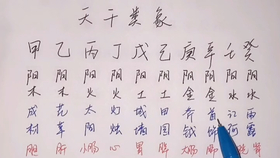 天干类象
甲 乙 丙 丁 戊 己 庚 辛 壬 癸
阳 阴 阳 阴 阳 阴 阳 阴 阳 阴
木 木 火 火 土 土 金 金 水 水
成 花 太 灯 城 田 斧 首 江 雨
材 草 阳 烛 墙 园 钺 饰 河 露
胆 肝 小肠 心 胃 脾 大肠 肺